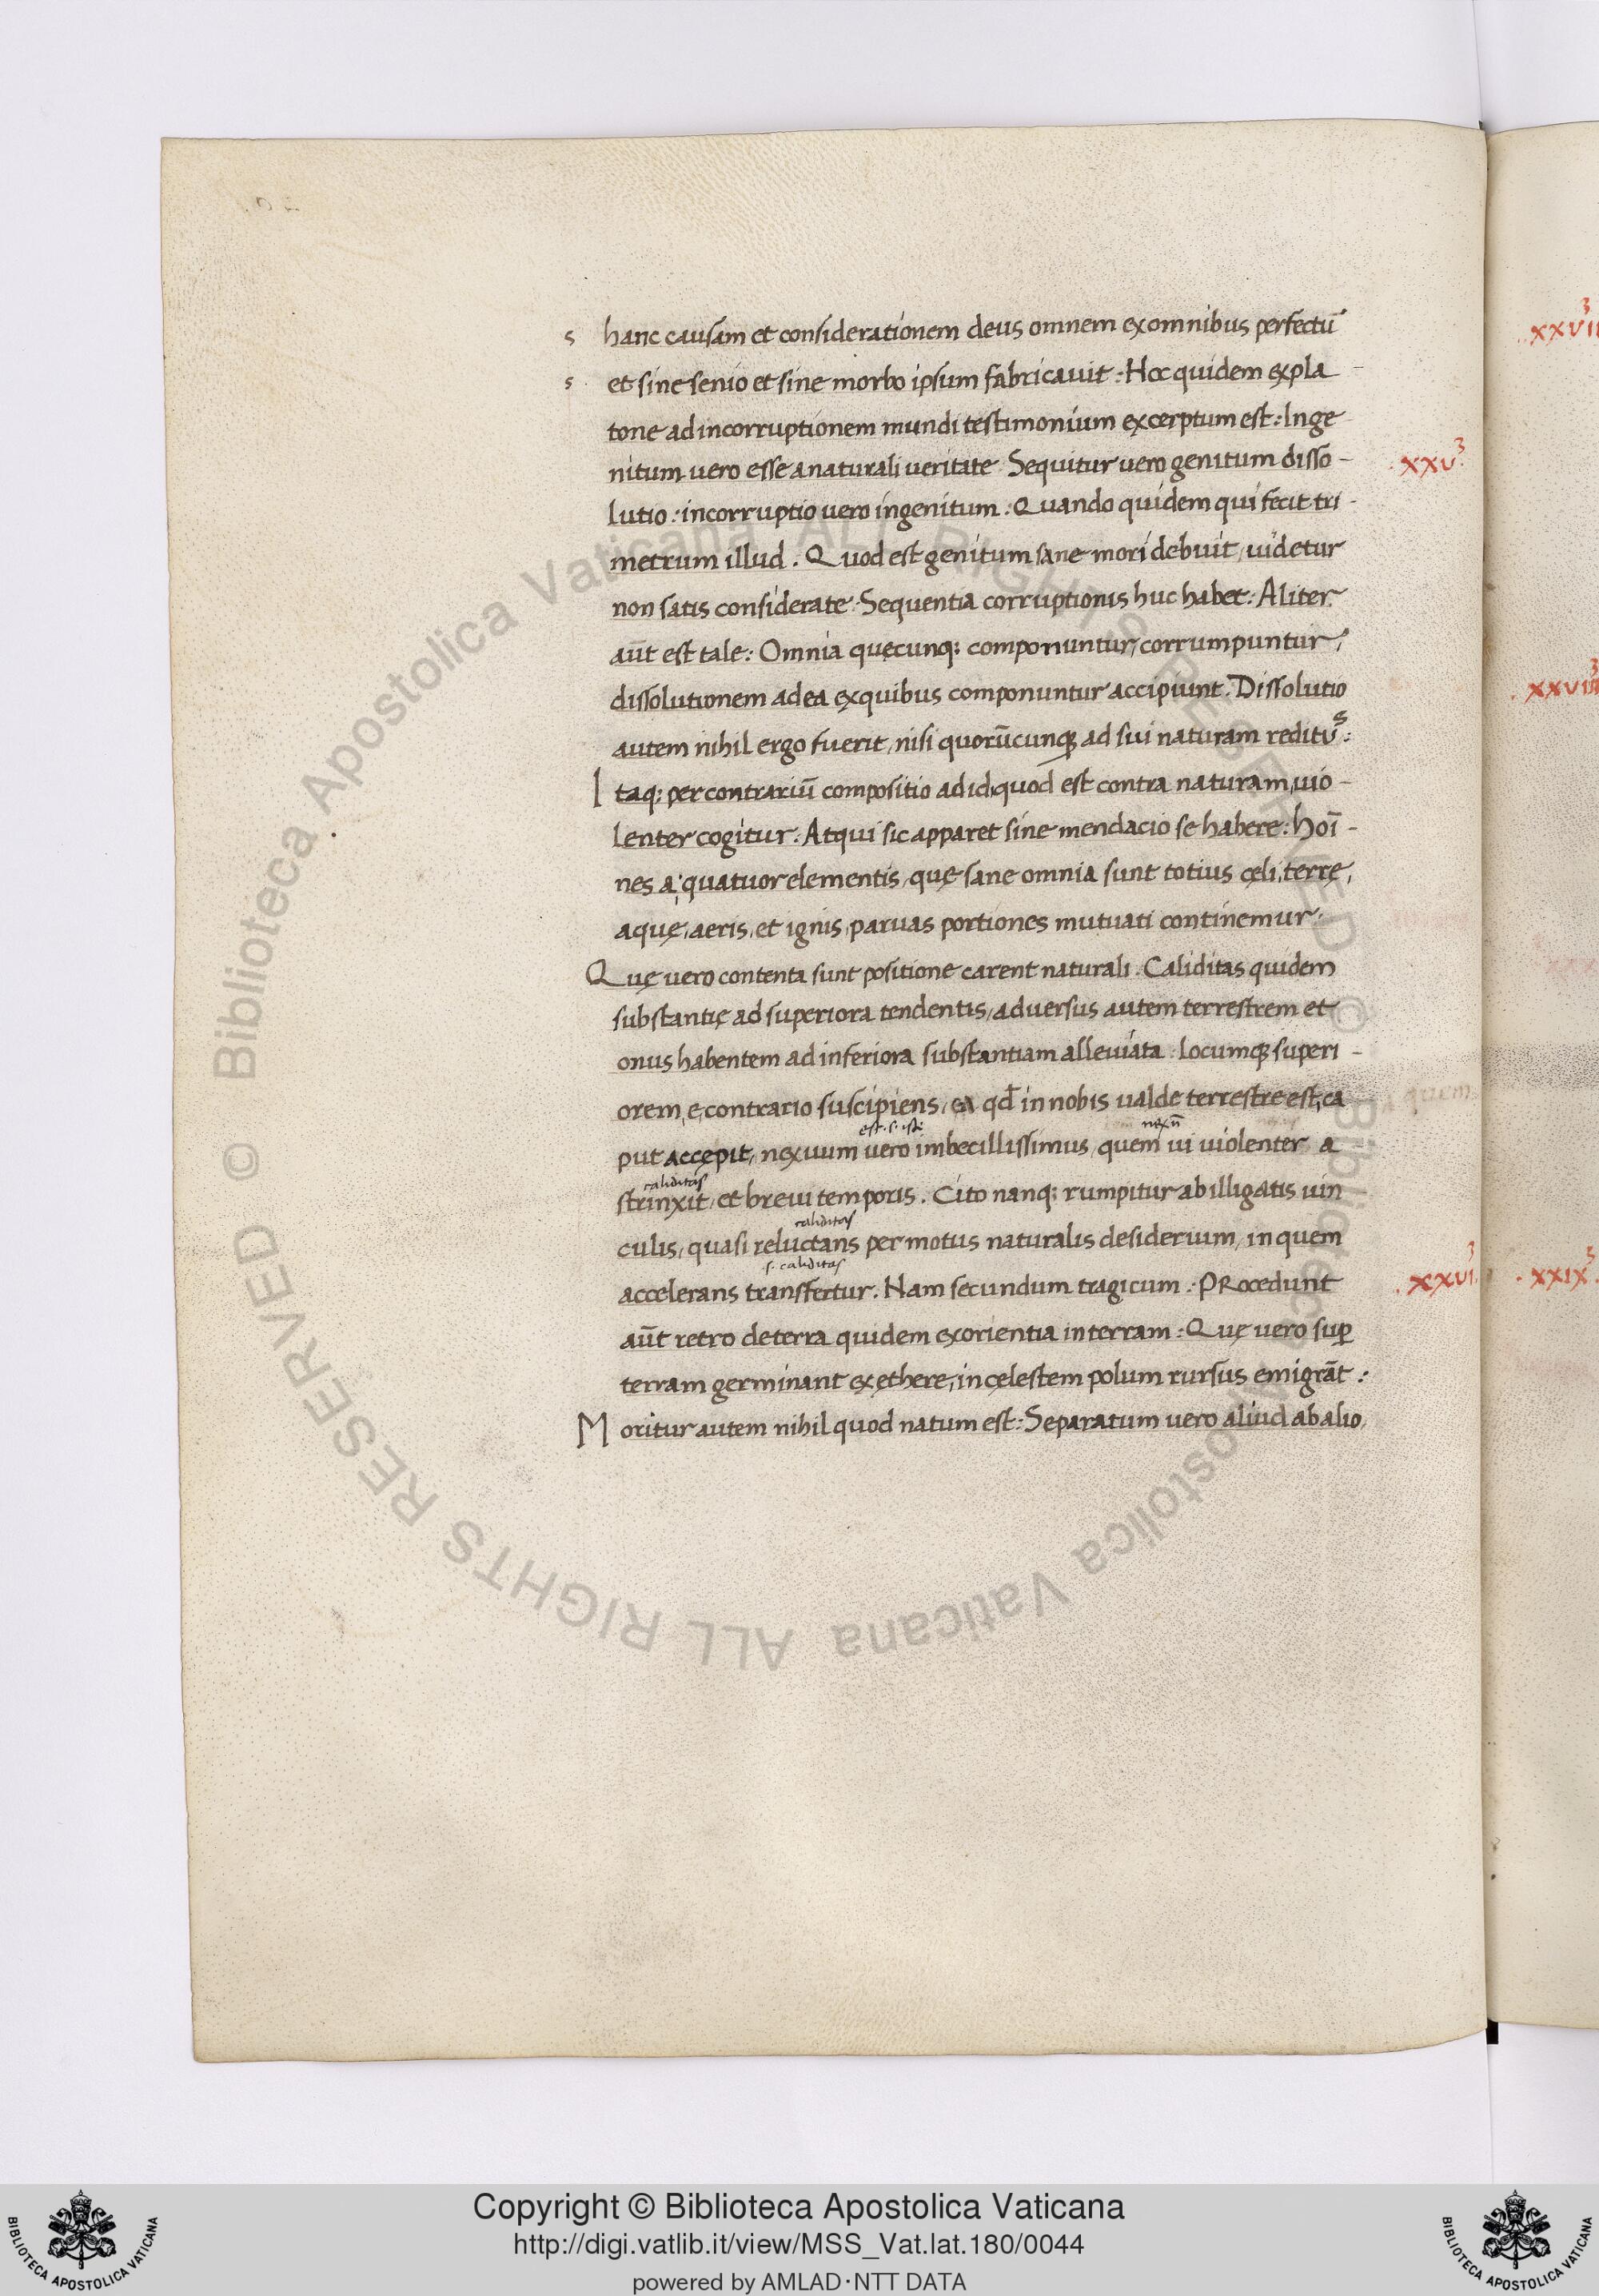 s hanc causam et considerationem deus omnem ex omnibus perfectū
s et sine senio et sine morbo ipsum fabricavit : Hoc quidem ex pla
tone ad incorruptionem mundi testimonium excerptum est : Inge
nitum vero esse a naturali veritate. Sequitur vero genitum disso- .xxv.³
lutio : incorruptio vero ingenitum : Quando quidem qui fecit tri-
metrum illud . Quod est genitum sane mori debuit, uidetur
non satis considerate. Sequentia corruptionis huc habet : Aliter
aūt est tale : Omnia quęcunq; componuntur, corrumpuntur,
dissolutionem ad ea ex quibus componuntur accipiunt. Dissolutio
autem nihil ergo fuerit, nisi quorūcunq; ad sui naturam reditus :
Itaq; per contrariū compositio ad id quod est contra naturam, uio-
lenter cogitur : Atqui sic apparet sine mendacio se habere : hoī-
nes a quatuor elementis, quę sane omnia sunt totius cęli, terrę,
aquę, aeris, et ignis, paruas portiones mutuati continemur.
Quę vero contenta sunt positione carent naturali. Caliditas quidem
substantię ad superiora tendentis, adversus autem terrestrem et
onus habentem ad inferiora substantiam alleviata. locumq; superi-
orem, e contrario suscipiens, ea qđ in nobis ualde terrestre est, ca
est. s. iste nexū
put accępit, nexuum vero imbecillissimus, quem ui violenter a
caliditas
strinxit, et brevi temporis. Cito nanq; rumpitur ab illigatis uin
caliditas
culis, quasi reluctans per motus naturalis desiderium, in quem
s. caliditas
accelerans transfertur. Nam secundum tragicum : PRocedunt .xxvi.³
aūt retro de terra quidem exorientia in terram : Quę vero sup
terram germinant ex ęthere, in cęlestem polum rursus emigrāt :
Moritur autem nihil quod natum est : Separatum vero aliud ab alio
.xxix.³
Copyright © Biblioteca Apostolica Vaticana
http://digi.vatlib.it/view/MSS_Vat.lat.180/0044
powered by AMLAD·NTT DATA
BIBLIOTECA APOSTOLICA VATICANA
BIBLIOTECA APOSTOLICA VATICANA
© Biblioteca Apostolica Vaticana ALL RIGHTS RESERVED © Biblioteca Apostolica Vaticana ALL RIGHTS RESERVED